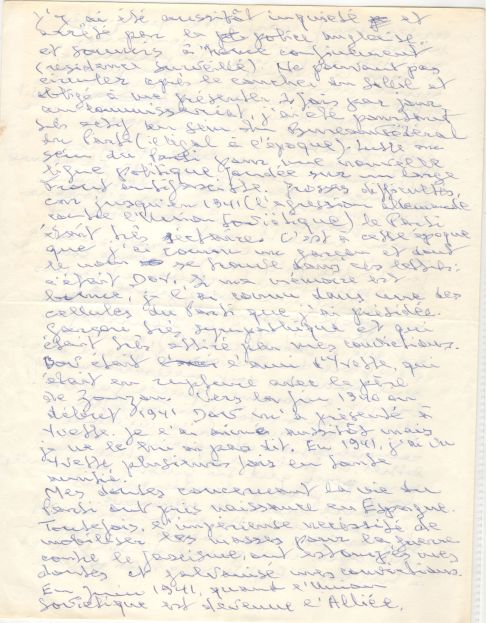 j'y ai été aussitôt inquiété et
arrêté par la police anglaise
et soumis à "house confinement"
(residence surveillé). Ne pouvant pas
circuler après le coucher du soleil et
obligé à me présenter fois par jour
au commissariat, j'ai été pourtant
très actif au sein du Bureau Fédéral
du Parti (illégal à l'époque). Lutte au
sein du Parti pour une nouvelle
ligne politique fondée sur un large
Front antifasciste. Grosses difficultés,
car jusqu'en 1941 (l'agression allemande
contre l'Union Soviétique) le Parti
était très sectaire. C'est à cette époque
que j'ai connu un garçon et dont
le nom se trouve dans ces lettres:
c'était Dov. Si ma mémoire est
bonne, je l'ai connu dans une des
cellules du Parti que j'ai présidée.
Garçon très sympathique et qui
était très attiré par mes convictions.
Dov était l'ami d'Yvette, qui
était en rupture avec le père
de Zouzou. Vers la fin 1940 ou
début 1941 Dov m'a présenté à
Yvette. Je l'ai aimé aussitôt mais
je ne le lui ai pas dit. En 1941, j'ai vu
Yvette plusieurs fois en toute
amitié.
Mes doutes concernant la vie du
Parti ont pris naissance en Espagne.
Toutefois, l'impérieuse nécessité de
mobiliser les masses pour la guerre
contre le fascisme, ont estompés mes
doutes et galvanisé mes convictions.
En Juin 1941, quand l'Union
Soviétique est devenue l'Alliée,